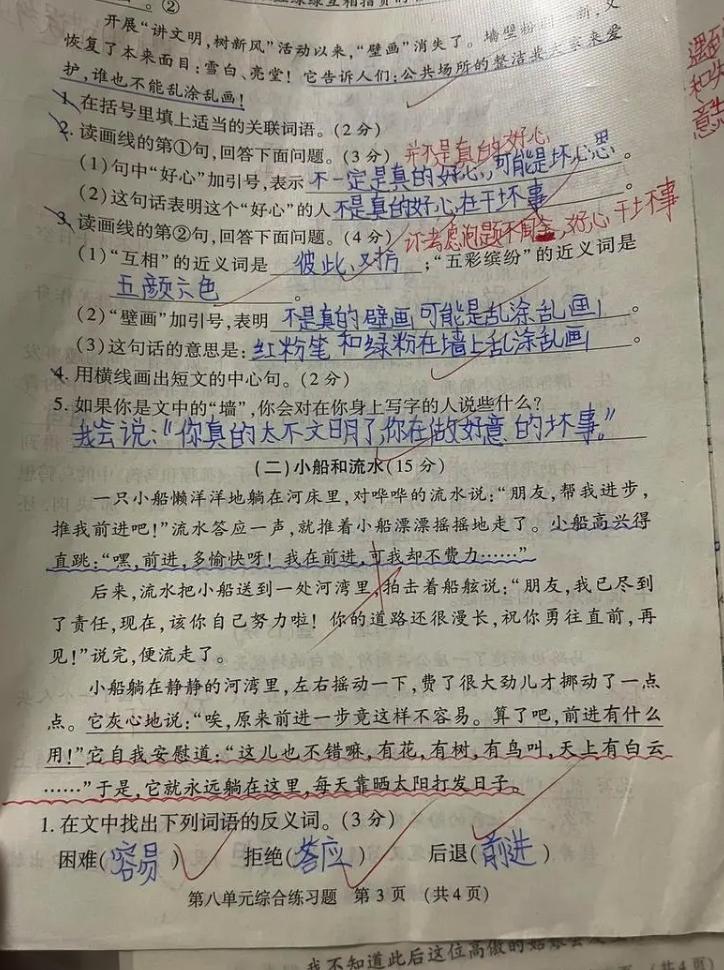 。②
开展“讲文明,树新风”活动以来,“壁画”消失了。墙壁粉 新,又
恢复了本来面目:雪白、亮堂!它告诉人们:公共场所的整洁 大家来爱
护,谁也不能乱涂乱画!
1.在括号里填上适当的关联词语。(2分)
2.读画线的第①句,回答下面问题。(3分) 并不是真的好心
(1)句中“好心”加引号,表示 不一定是真的好心,可能是坏心思。
(2)这句话表明这个“好心”的人 不是真的好心,在干坏事。
3.读画线的第②句,回答下面问题。(4分) 考虑问题不周全,好心干坏事
(1)“互相”的近义词是 彼此、 ;“五彩缤纷”的近义词是
五颜六色。
(2)“壁画”加引号,表明 不是真的壁画可能是乱涂乱画。
(3)这句话的意思是:红粉笔和绿粉在墙上乱涂乱画。
4.用横线画出短文的中心句。(2分)
5.如果你是文中的“墙”,你会对在你身上写字的人说些什么?
我会说:“你真的太不文明了,你在做好意的坏事。”
(二)小船和流水(15分)
一只小船懒洋洋地躺在河床里,对哗哗的流水说:“朋友,帮我进步,
推我前进吧!”流水答应一声,就推着小船漂漂摇摇地走了。小船高兴得
直跳:“嘿,前进,多愉快呀!我在前进,可我却不费力……”
后来,流水把小船送到一处河湾里,拍击着船舷说:“朋友,我已尽到
了责任,现在,该你自己努力啦!你的道路还很漫长,祝你勇往直前,再
见!”说完,便流走了。
小船躺在静静的河湾里,左右摇动一下,费了很大劲儿才挪动了一点
点。它灰心地说:“唉,原来前进一步竟这样不容易。算了吧,前进有什么
用!”它自我安慰道:“这儿也不错嘛,有花,有树,有鸟叫,天上有白云
……”于是,它就永远躺在这里,每天靠晒太阳打发日子。
1.在文中找出下列词语的反义词。(3分)
困难(容易) 拒绝(答应) 后退(前进)
第八单元综合练习题 第3页 (共4页)
我不知道此后这位高傲的姑娘会
(共4页)
遇到
和
意